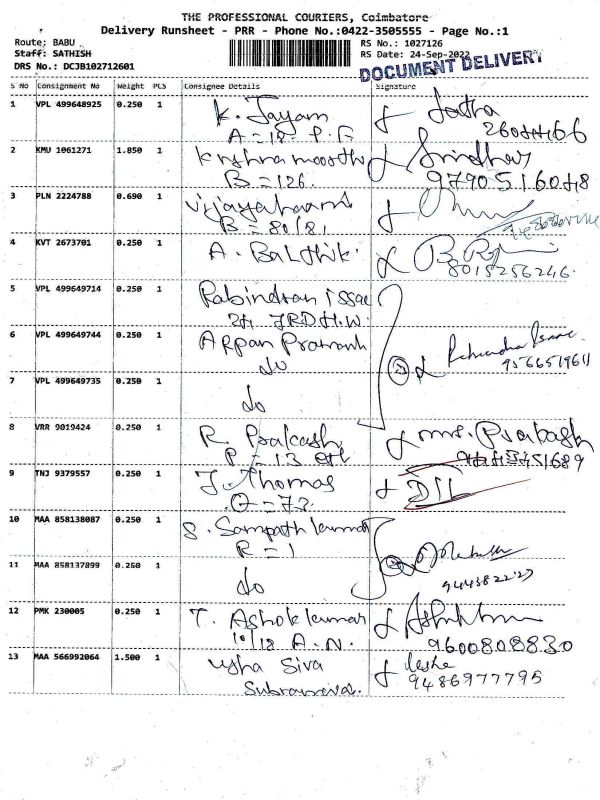 THE PROFESSIONAL COURIERS, Coimbatore
Delivery Runsheet - PRR - Phone No.:0422-3505555 - Page No.:1
Route: BABU
RS No.: 1027126
Staff: SATHISH
RS Date: 24-Sep-2022
DRS No.: DCJB102712601
DOCUMENT DELIVERY
S No Consignment No Weight PCS Consignee Details Signature
1 VPL 499648925 0.250 1 K. Jayam
A = 18 - P. G
2 KMU 1061271 1.850 1 Krishnamoorthy Sridhar
B = 126. 9790516048
3 PLN 2224788 0.690 1
B = 80/81
4 KVT 2673701 0.250 1 A. Balthik.
8015256246.
5 VPL 499649714 0.250 1 Rabindran Issac
6 VPL 499649744 0.250 1 Arpan
do 9566519611
7 VPL 499649735 0.250 1 do
8 VRR 9019424 0.250 1 R. Prakash Mrs. Prabash
P = 13
9 TNJ 9379557 0.250 1 J. Thomas
O = 73.
10 MAA 858138087 0.250 1 S. Sampath kumar
R = 1
11 MAA 858137899 0.250 1 do
12 PMK 230005 0.250 1 T. Ashok kumar
10/18 A.N. 9600808830
13 MAA 566992064 1.500 1 Usha Siva Usha
Subramaniam. 9486977795